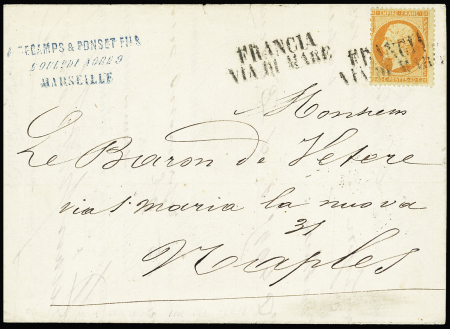 & PONSET FILS
MARSEILLE
FRANCIA
VIA DI MARE
EMPIRE FRANC
FRANCIA
VIA DI MARE
Monsieur
Le Baron de Vetere
via S. maria la nuova
31
Naples